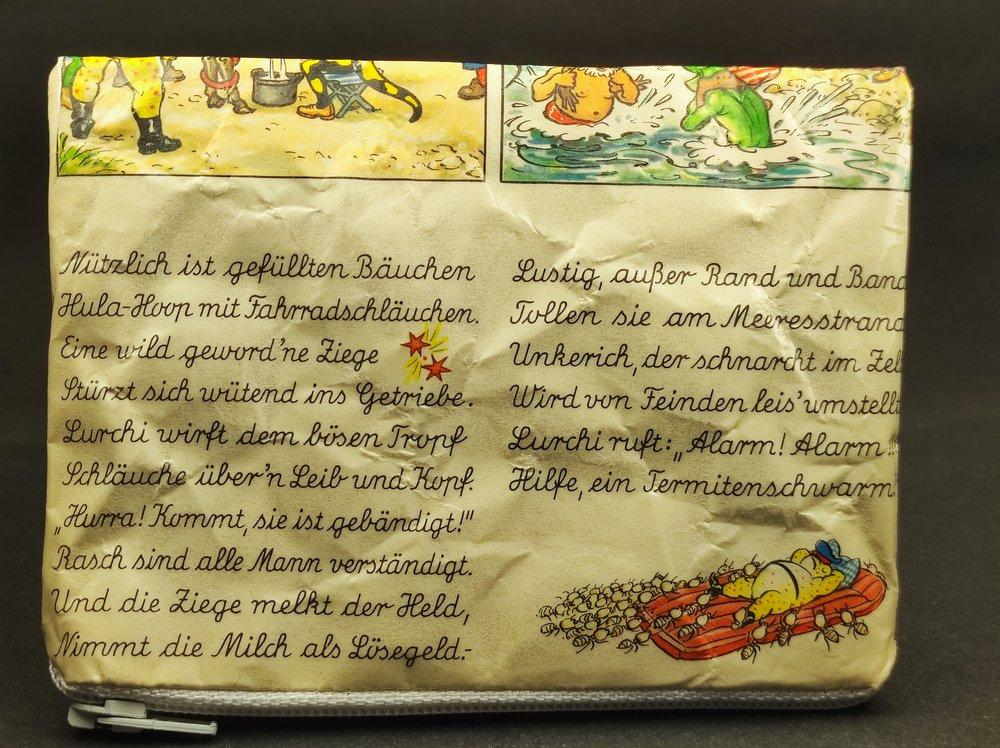 Nützlich ist gefüllten Bäuchen
Hula-Hoop mit Fahrradschläuchen.
Eine wild geword'ne Ziege
Stürzt sich wütend ins Getriebe.
Lurchi wirft dem bösen Tropf
Schläuche über'n Leib und Kopf.
„Hurra! Kommt, sie ist gebändigt!"
Rasch sind alle Mann verständigt.
Und die Ziege melkt der Held,
Nimmt die Milch als Lösegeld.-
Lustig, außer Rand und Band
Tollen sie am Meeresstrand
Unkerich, der schnarcht im Zel
Wird von Feinden leis' umstellt
Lurchi ruft: „Alarm! Alarm!!
Hilfe, ein Termitenschwarm